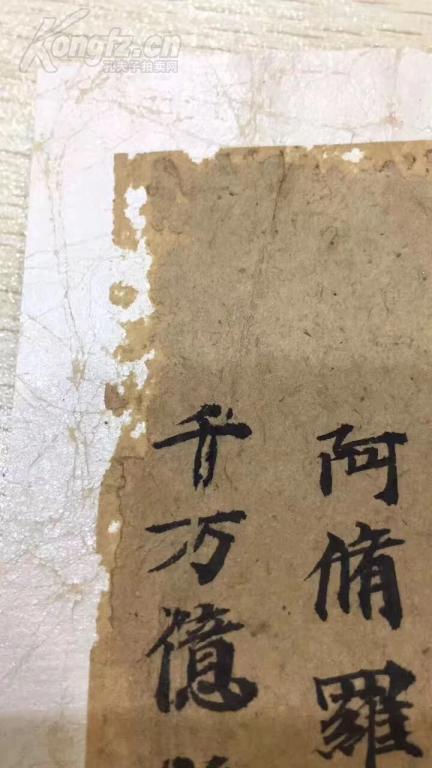 Kongfz.cn
孔夫子拍卖网
阿脩羅
万億